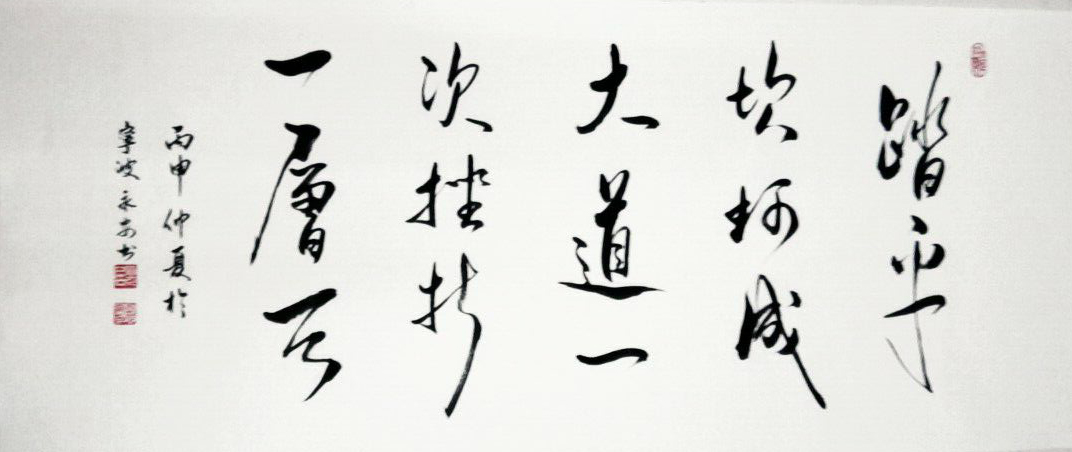 踏平
坎坷成
大道一
次挫折
一層云
丙申仲夏於
寧波永安书